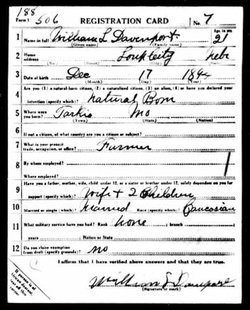 188
Form 1 506 REGISTRATION CARD No. 7
1 Name in full William L Davenport Age, in yrs. 21
(Given name) (Family name)
2 Home address Nebr
3 Date of birth Dec 17
(Month) (Day) (Year)
4 Are you (1) a natural-born citizen, (2) a naturalized citizen, (3) an alien, (4) or have you declared your intention (specify which)? Natural Born
5 Where were you born? Tarkio Mo
(Town) (State) (Nation)
6 If not a citizen, of what country are you a citizen or subject?
7 What is your present trade, occupation, or office? Farmer
8 By whom employed?
Where employed?
9 Have you a father, mother, wife, child under 12, or a sister or brother under 12, solely dependent on you for support (specify which)? Wife + 2 Children
10 Married or single (which)? Married Race (specify which)? Caucasian
11 What military service have you had? Rank None ; branch
years ; Nation or State
12 Do you claim exemption from draft (specify grounds)? No
I affirm that I have verified above answers and that they are true.
William L Davenport
(Signature or mark)